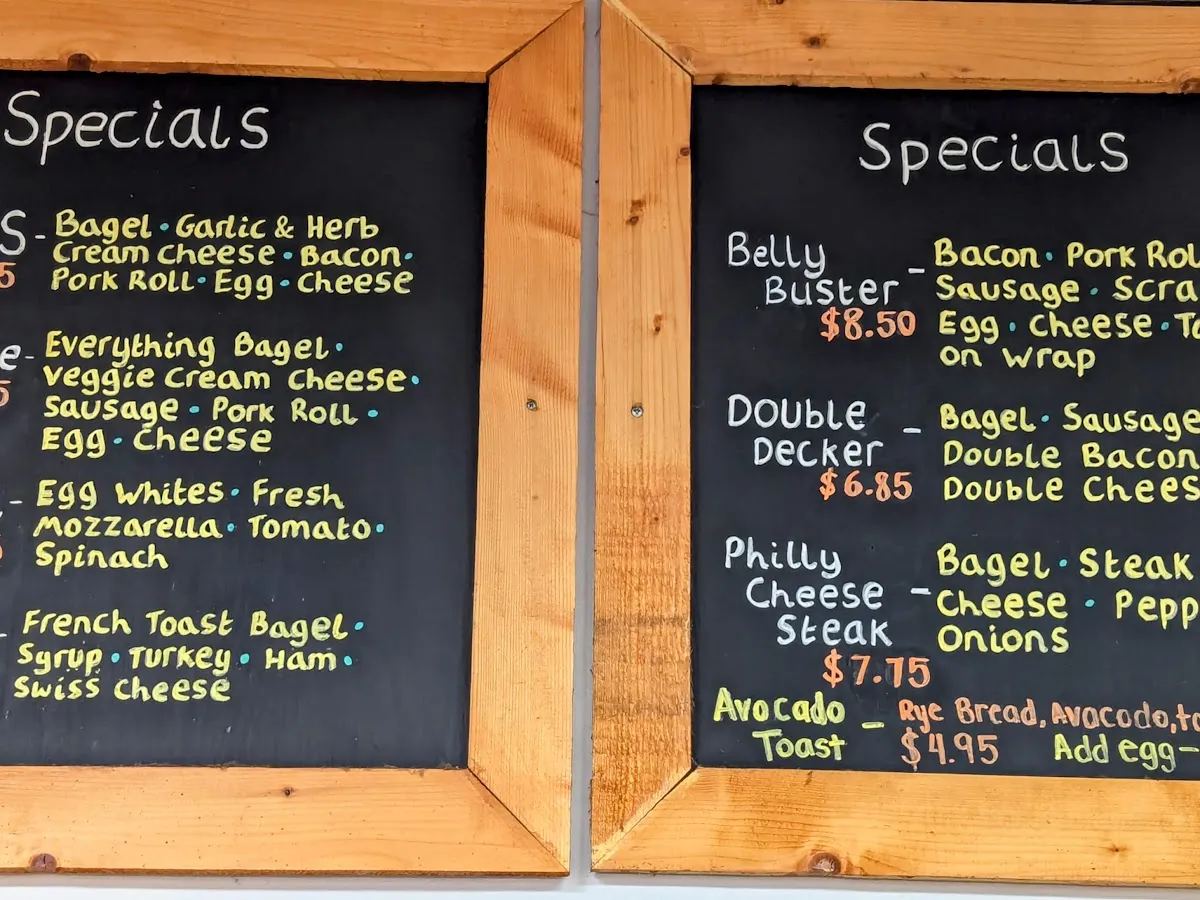 Specials
Bagel · Garlic & Herb
Cream Cheese · Bacon ·
Pork Roll · Egg · Cheese
Everything Bagel ·
Veggie Cream Cheese ·
Sausage · Pork Roll ·
Egg · Cheese
Egg Whites · Fresh
Mozzarella · Tomato ·
Spinach
French Toast Bagel ·
Syrup · Turkey · Ham ·
Swiss Cheese
Specials
Belly
Buster –
$8.50
Bacon · Pork
Sausage ·
Egg · Cheese ·
on wrap
Double
Decker –
$6.85
Bagel · Sausage
Double Bacon
Double
Philly
Cheese –
Steak
$7.75
Bagel · Steak
Cheese ·
Onions
Avocado – Rye Bread, Avocodo,
Toast $4.95 Add egg –